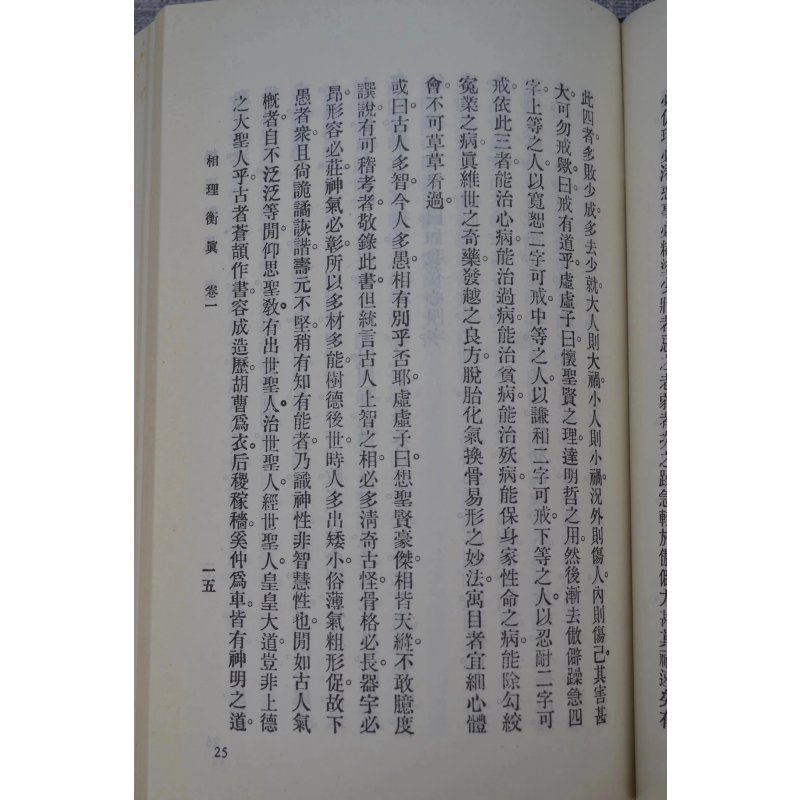 此四者多敗少成多去少就。大人則大禍。小人則小禍。況外則傷人。內則傷己。其害甚
大。可勿戒歟。曰戒有道乎。虛虛子曰。懷聖賢之理。達明哲之用。然後漸去傲僻躁急四
字。上等之人。以寬恕二字可戒。中等之人。以謙和二字可戒。下等之人。以忍耐二字可
戒。依此三者。能治心病。能治過病。能治貧病。能治殀病。能保身家性命之病。能除勾絞
冤業之病。眞維世之奇藥。發越之良方。脫胎化氣換骨易形之妙法。寓目者宜細心體
會。不可草草看過。
或曰。古人多智。今人多愚。相有別乎。否耶。虛虛子曰。想聖賢豪傑。相皆天縫。不敢臆度
譔說。有可稽考者。敬錄此書。但統言古人上智之相。必多淸奇古怪。骨格必長。器宇必
昂。形容必莊。神氣必彰。所以多材多能。樹德後世。時人多出矮小俗薄。氣粗形促。故下
愚者衆。且尙詭譎詼諧。壽元不堅。稍有知有能者。乃識神性。非智慧性也。間如古人氣
槪者。自不泛泛等閒。仰思聖敎。有出世聖人。治世聖人。經世聖人。皇皇大道。豈非上德
之大聖人乎。古者蒼頡作書。容成造歷。胡曹爲衣。后稷稼穡。奚仲爲車。皆有神明之道。
相理衡眞　卷一
一五
25